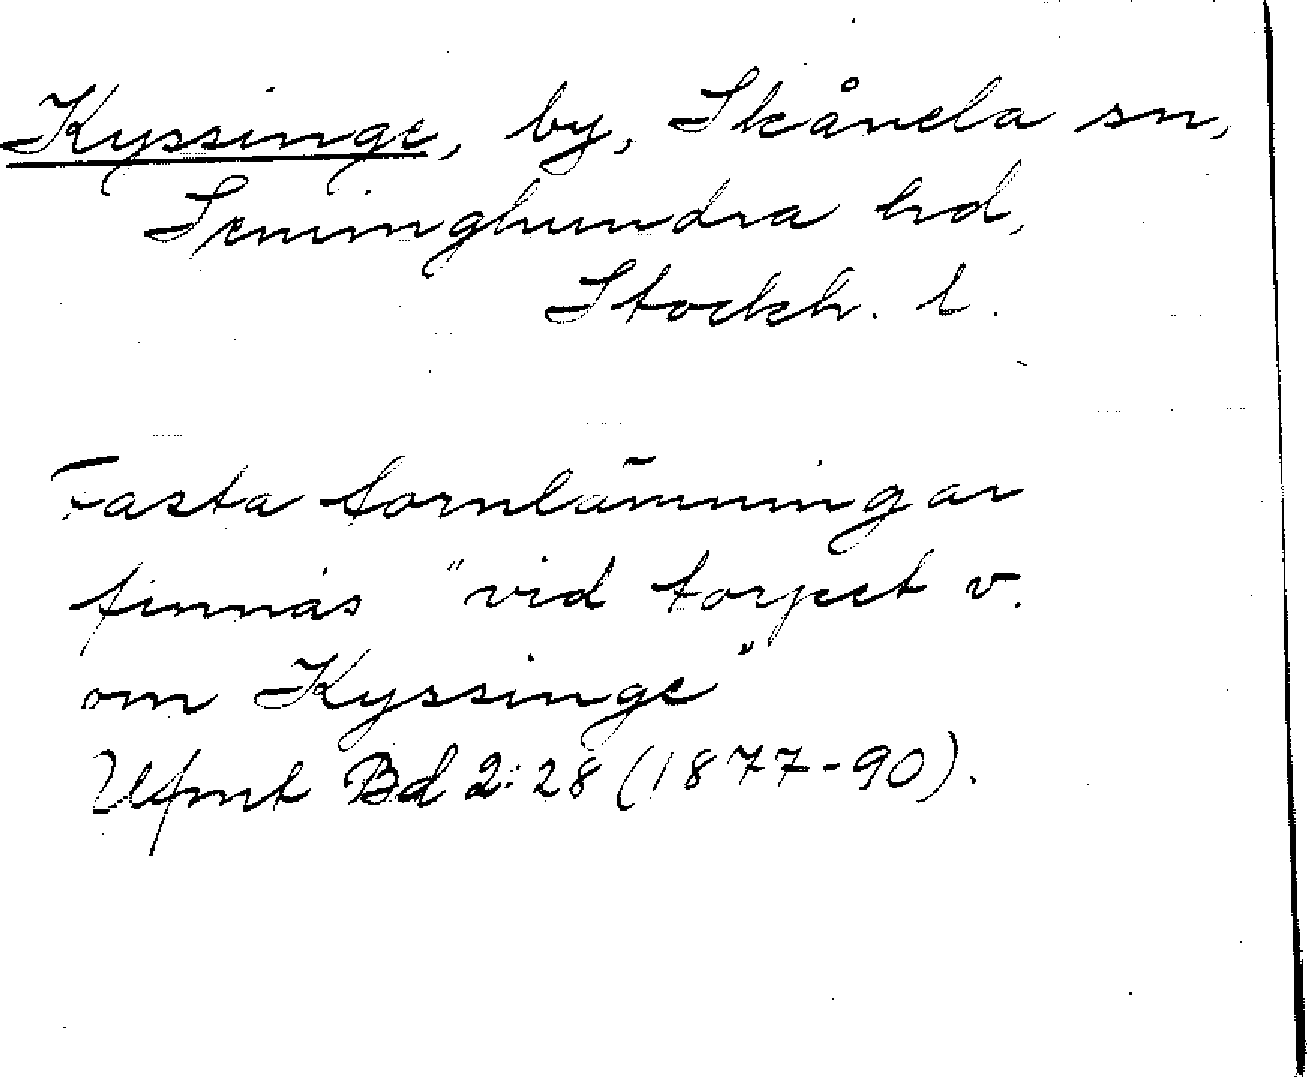 Kyssinge, by, Skånela sn,
Seminghundra hd,
Stockh. l.
Fasta fornlämningar
finnas "vid torpet v.
om Kyssinge"
Ufmt Bd 2:28 (1877-90).